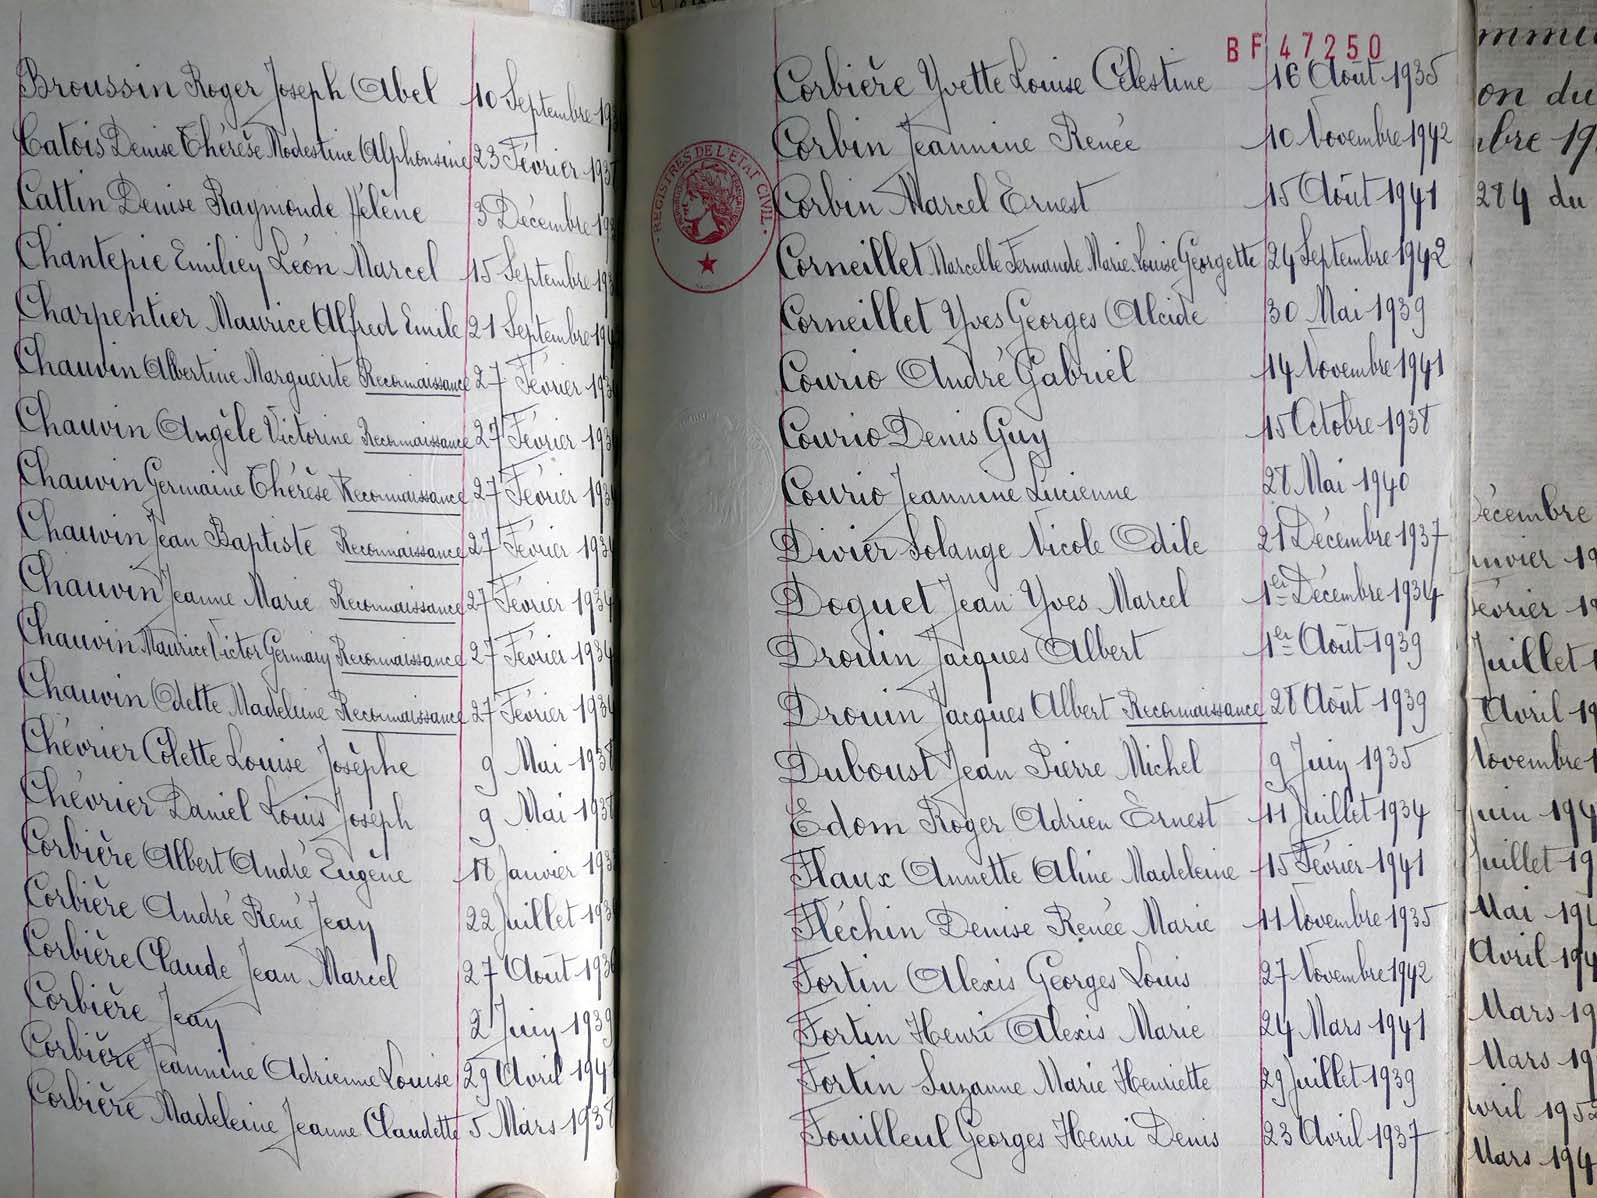 Broussin Roger Joseph Abel 10 Septembre 193
Catois Denise Thérèse Modestine Alphonsine 23 Février 1937
Cattin Denise Raymonde Hélène 3 Décembre 19
Chantepie Emilien Léon Marcel 15 Septembre 193
Charpentier Maurice Alfred Emile 21 Septembre 194
Chauvin Albertine Marguerite Reconnaissance 27 Février 1934
Chauvin Angèle Victorine Reconnaissance 27 Février 1934
Chauvin Germaine Thérèse Reconnaissance 27 Février 1934
Chauvin Jean Baptiste Reconnaissance 27 Février 1934
Chauvin Jeanne Marie Reconnaissance 27 Février 1934
Chauvin Maurice Victor Germain Reconnaissance 27 Février 1934
Chauvin Odette Madeleine Reconnaissance 27 Février 1934
Chévrier Colette Louise Josèphe 9 Mai 1938
Chévrier Daniel Louis Joseph 9 Mai 1938
Corbière Albert André Eugène 18 Janvier 193
Corbière André René Jean 22 Juillet 193
Corbière Claude Jean Marcel 27 Août 1936
Corbière Jean 2 Juin 1939
Corbière Jeannine Adrienne Louise 29 Avril 194
Corbière Madeleine Jeanne Claudette 5 Mars 1938
BF 47250
REGISTRES DE L'ETAT CIVIL
Corbière Yvette Louise Célestine 16 Août 1935
Corbin Jeannine Renée 10 Novembre 1942
Corbin Marcel Ernest 15 Août 1941
Corneillet Marcelle Fernande Marie-Louise Georgette 24 Septembre 1942
Corneillet Yves Georges Alcide 30 Mai 1939
Courio André Gabriel 14 Novembre 1941
Courio Denis Guy 15 Octobre 1938
Courio Jeannine Lucienne 28 Mai 1940
Divier Solange Nicole Odile 21 Décembre 1937
Doguet Jean Yves Marcel 1er Décembre 1934
Drouin Jacques Albert 1er Août 1939
Drouin Jacques Albert Reconnaissance 28 Août 1939
Duboust Jean Pierre Michel 9 Juin 1935
Edom Roger Adrien Ernest 11 Juillet 1934
Flaux Annette Aline Madeleine 15 Février 1941
Fléchin Denise Renée Marie 11 Novembre 1935
Fortin Alexis Georges Louis 27 Novembre 1942
Fortin Henri Alexis Marie 24 Mars 1941
Fortin Suzanne Marie Henriette 29 Juillet 1939
Fouilleul Georges Henri Denis 23 Avril 1937
mmu
on du
bre 19
284 du
écembre
nvier 19
évrier 19
Juillet 1
Avril 19
Novembre 1
uin 194
Juillet 19
Mai 194
Avril 194
Mars 19
Mars 19
vril 1952
Mars 194